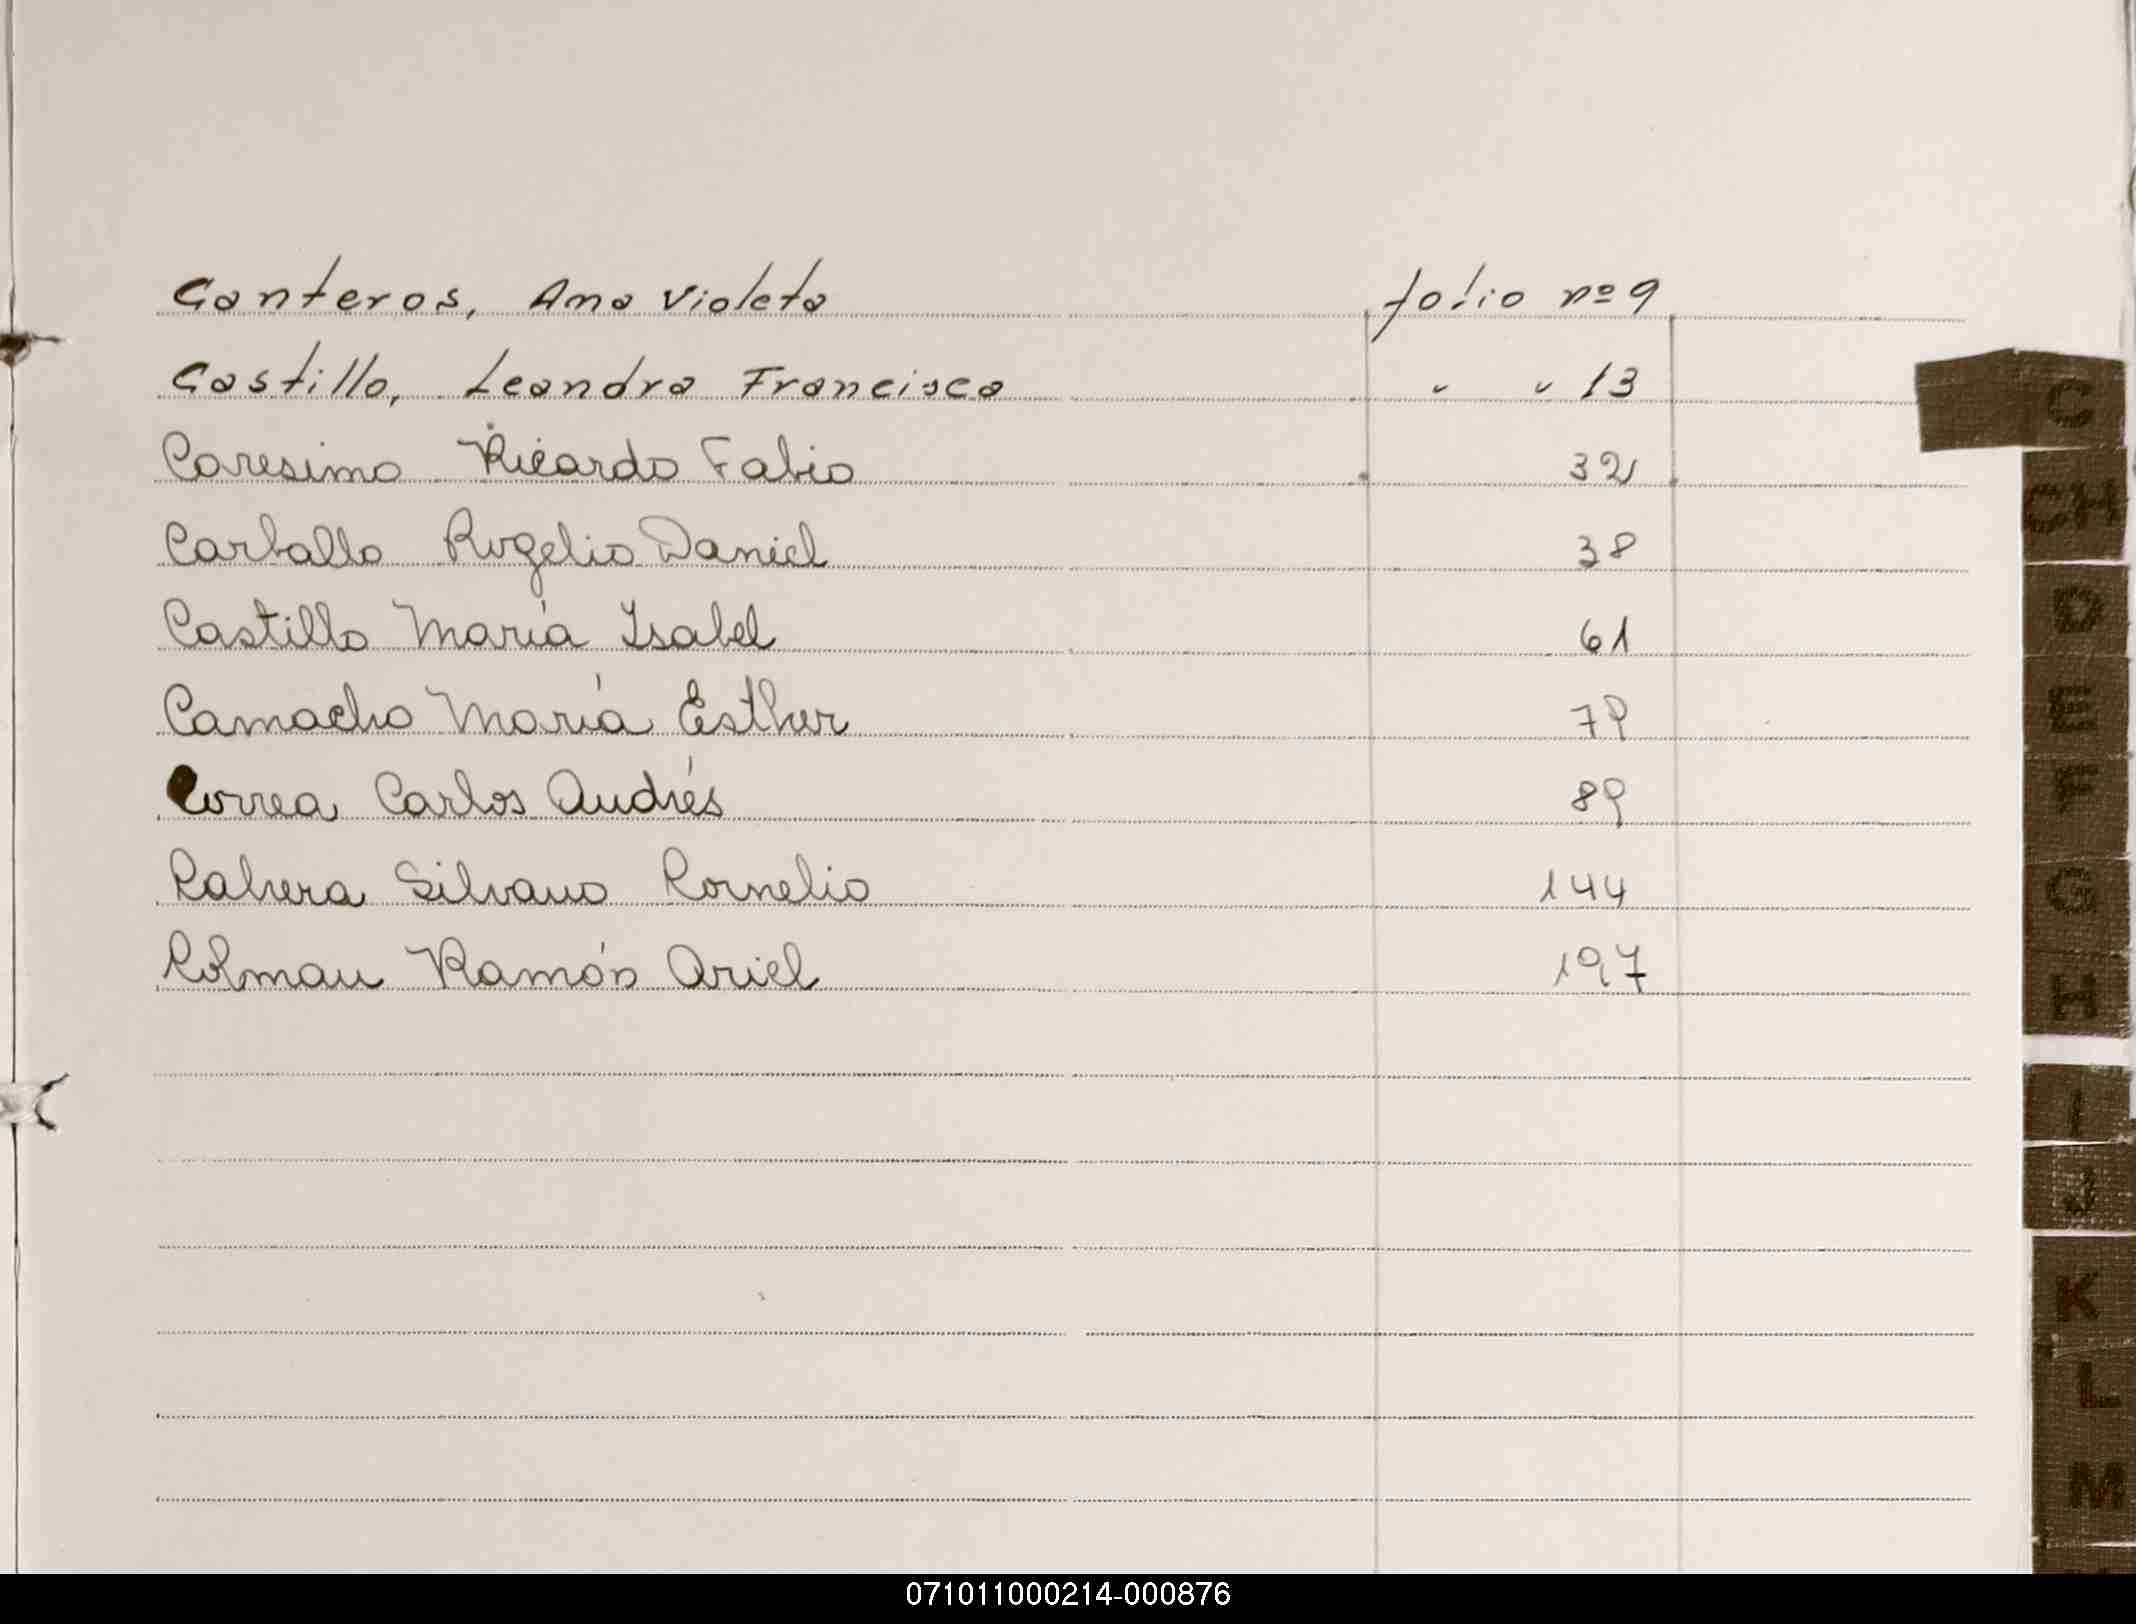 Canteros, Ana Violeta folio nº 9
Castillo, Leandra Francisca " " 13
Caresimo Ricardo Fabio 32
Carballo Rogelio Daniel 38
Castillo María Isabel 61
Camacho María Esther 79
Correa Carlos Andrés 89
Silvano Cornelio 144
Colman Ramón Ariel 197
C
CH
D
E
F
G
H
I
J
K
L
M
071011000214-000876